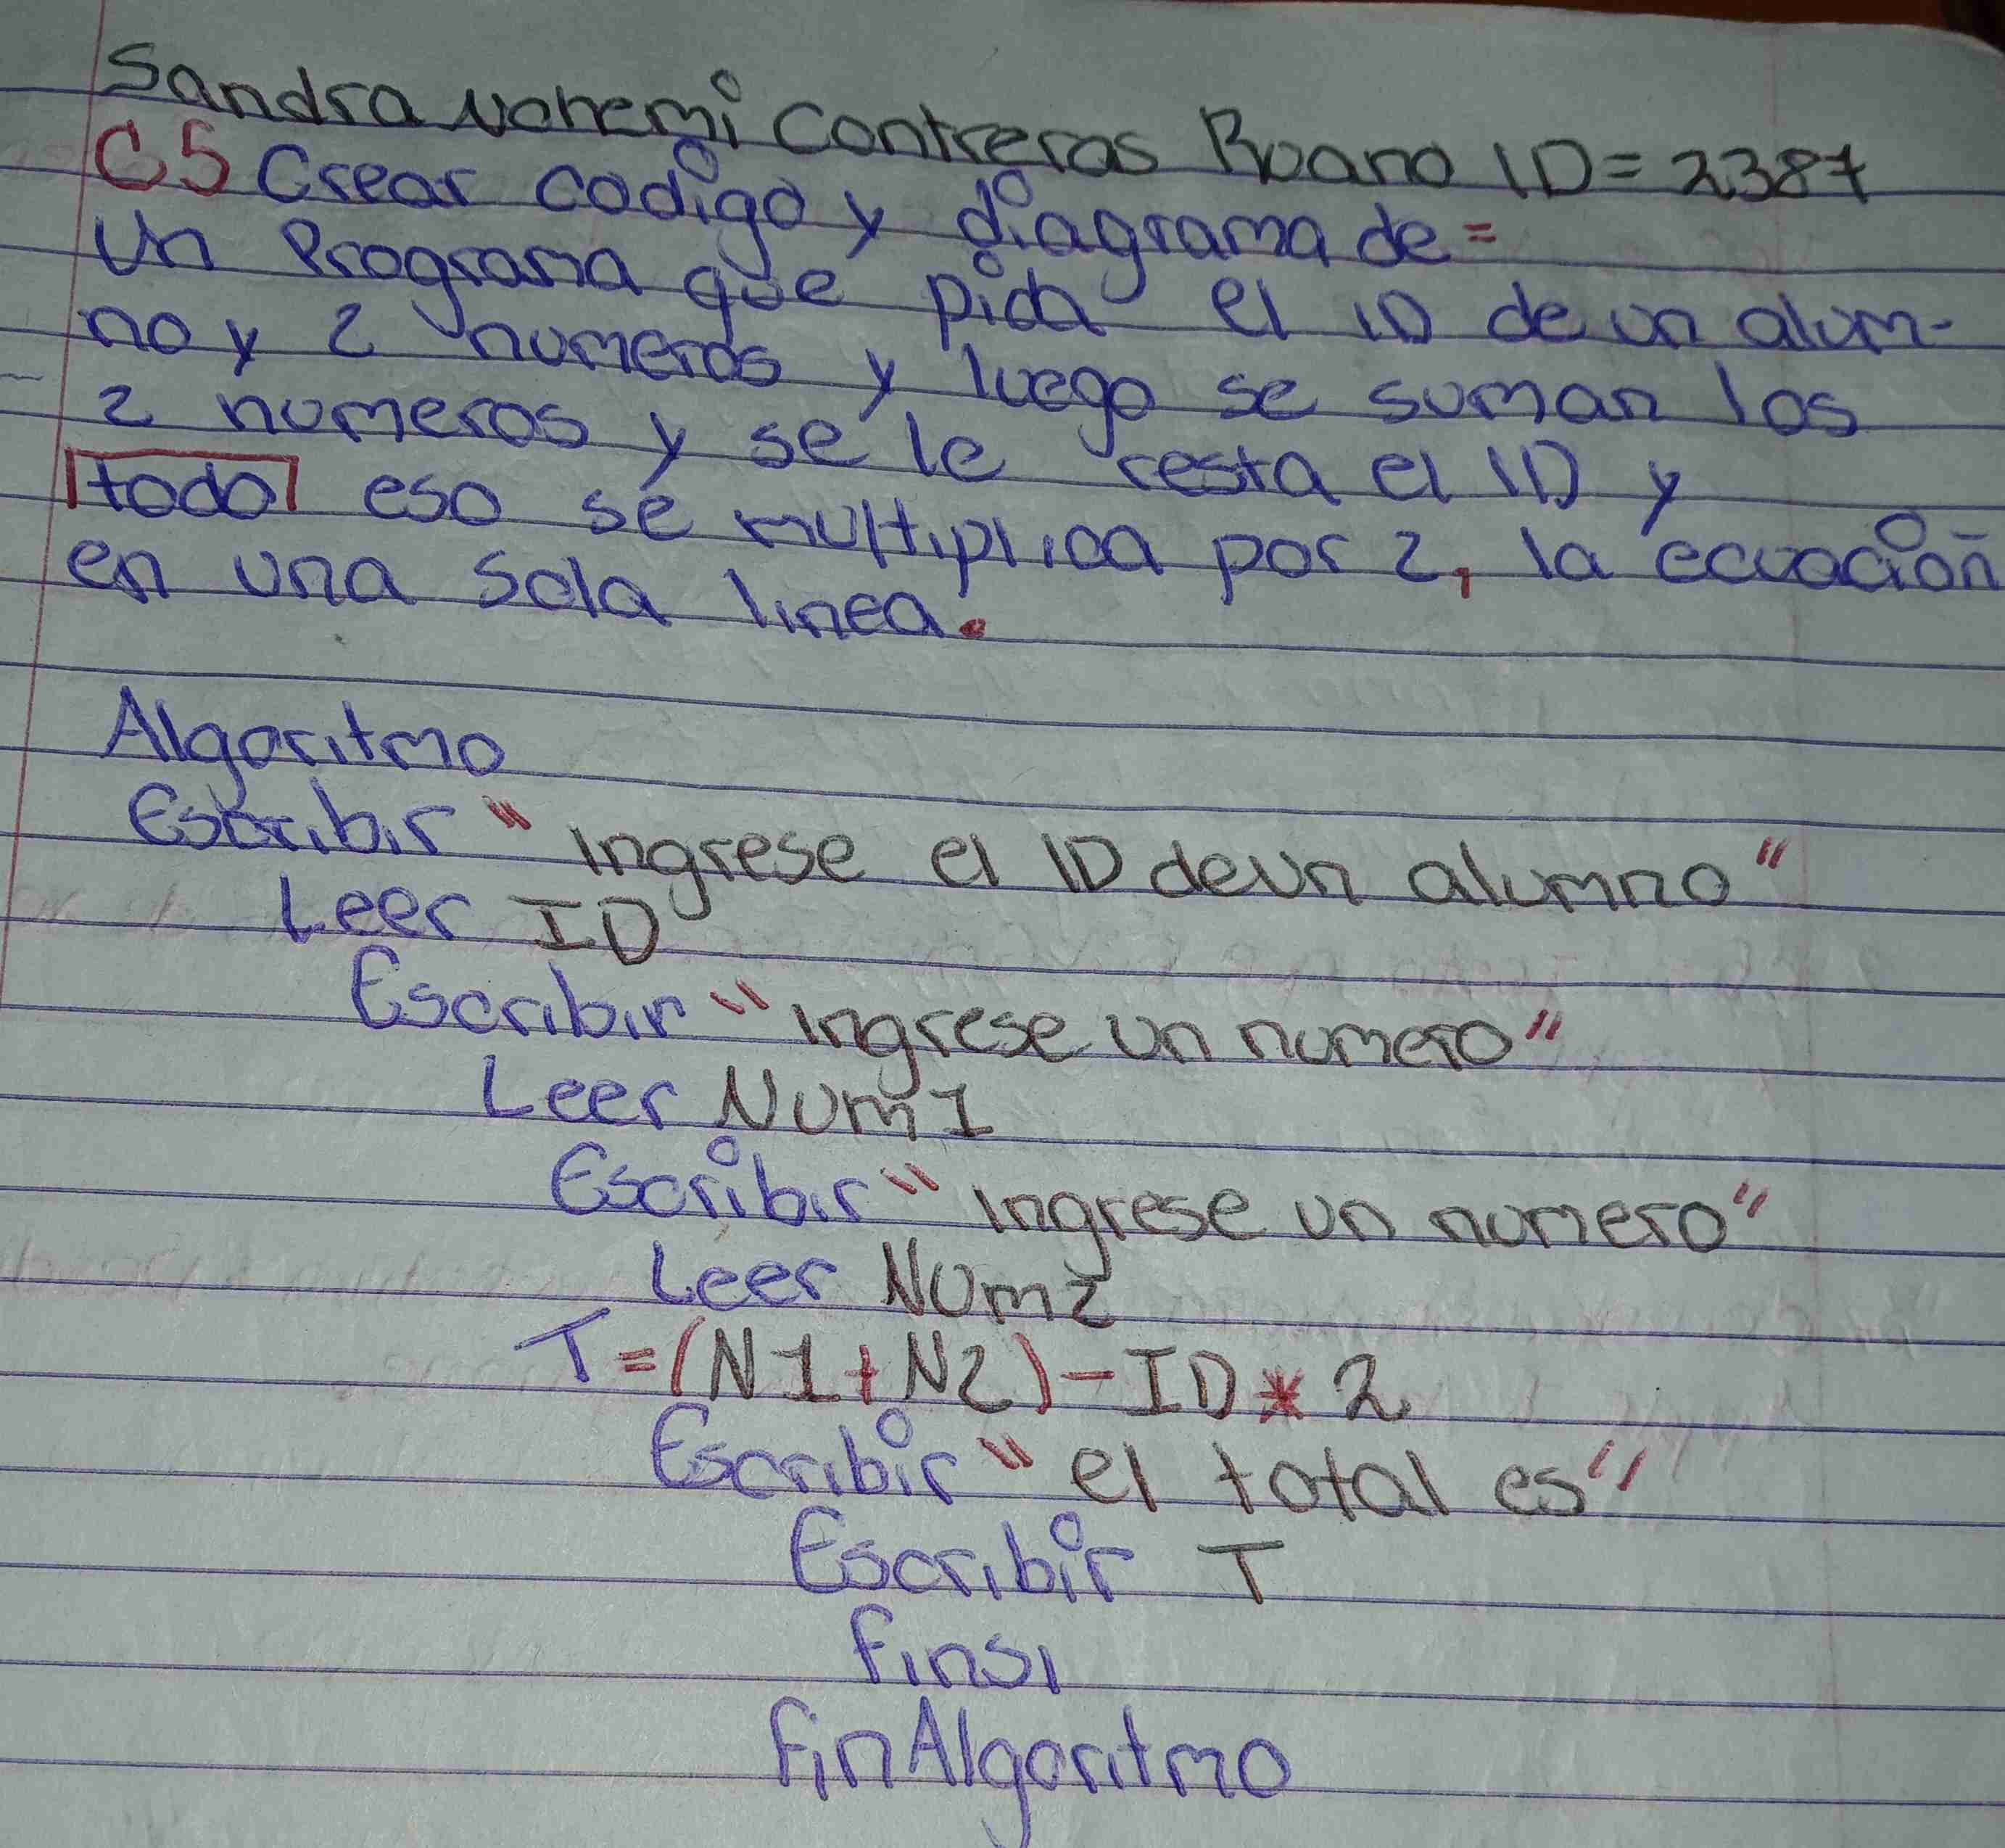 Sandra Nohemi Contreras Ruano ID=2387
C5 Crear codigo y diagrama de=
Un Programa que pida el ID de un alum-
no y 2 numeros y luego se suman los
2 numeros y se le resta el ID y
todo eso se multiplica por 2, la ecuación
en una sola linea.
Algoritmo
Escribir "Ingrese el ID de un alumno"
Leer ID
Escribir "Ingrese un numero"
Leer Num1
Escribir "Ingrese un numero"
Leer Num2
T=(N1+N2)-ID*2
Escribir "el total es"
Escribir T
Finsi
FinAlgoritmo